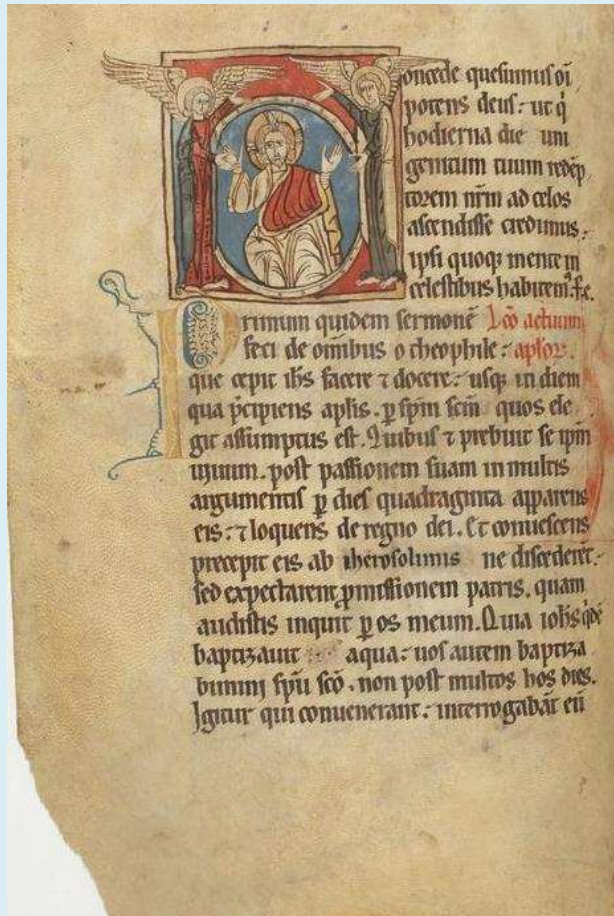 Concede quesumus oi
potens deus: ut q̓
hodierna die uni
genitum tuum redēp
torem nr̄m ad celos
ascendisse credimus:
ipsi quoqꝫ mente in
celestibus habitem᷒. ꝑ. e.
Primum quidem sermonē Lc̄o actuum
feci de om̄ibus o theophile: apl̄oꝝ.
que cepit ih̄s facere ⁊ docere: usqꝫ in diem
qua p̓cipiens apl̄is. ꝑ sp̄m sc̄m quos ele
git assumptus est. Quibus ⁊ prebuit se ip̄m
uiuum. post passionem suam in multis
argumentis ꝑ dies quadraginta apparens
eis: ⁊ loquens de regno dei. Et conuescens
precepit eis ab iherosolimis ne discederēt:
sed expectarent ꝓmissionem patris. quam
audistis inquit ꝑ os meum. Quia ioh̄s q̓dē
baptizauit aqua: uos autem baptiza
bimini sp̄u sc̄o. non post multos hos dies.
Igitur qui conuenerant: interrogabāt eū